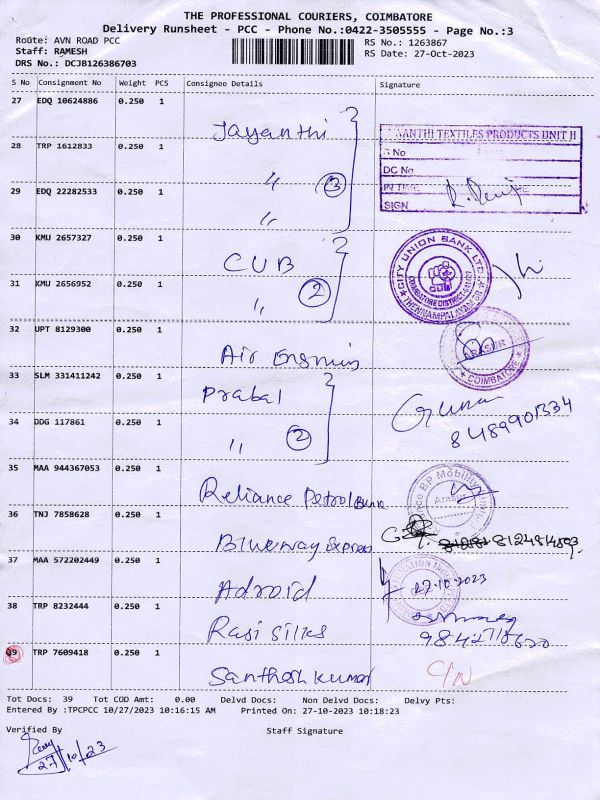 THE PROFESSIONAL COURIERS, COIMBATORE
Delivery Runsheet - PCC - Phone No.:0422-3505555 - Page No.:3
Route: AVN ROAD PCC RS No.: 1263867
Staff: RAMESH RS Date: 27-Oct-2023
DRS No.: DCJB126386703
S No Consignment No Weight PCS Consignee Details Signature
27 EDQ 10624886 0.250 1
Jayanthi
ANTHI TEXTILES PRODUCTS UNIT II
28 TRP 1612833 0.250 1
No
DC No
〃 3
IN TIME
29 EDQ 22282533 0.250 1
SIGN
〃
30 KMU 2657327 0.250 1
CUB
CITY UNION BANK LTD.
CUB
COIMBATORE DISTRICT-641407
THENNAMPALAYAM BR
31 KMU 2656952 0.250 1
〃 2
32 UPT 8129300 0.250 1
Air
ARASUR
COIMBATORE
33 SLM 331411242 0.250 1
Prabal
34 DDG 117861 0.250 1
〃 2
35 MAA 944367053 0.250 1
Reliance Petrol Bunk
BP Mobility
Arasur
36 TNJ 7858628 0.250 1
Blueway Express
8124814893
37 MAA 572202449 0.250 1
Adroid
27.10.2023
38 TRP 8232444 0.250 1
Rasi Silks
39 TRP 7609418 0.250 1
Santhosh kumar
C/N
Tot Docs: 39 Tot COD Amt: 0.00 Delvd Docs: Non Delvd Docs: Delvy Pts:
Entered By :TPCPCC 10/27/2023 10:16:15 AM Printed On: 27-10-2023 10:18:23
Verified By Staff Signature
27/10/23